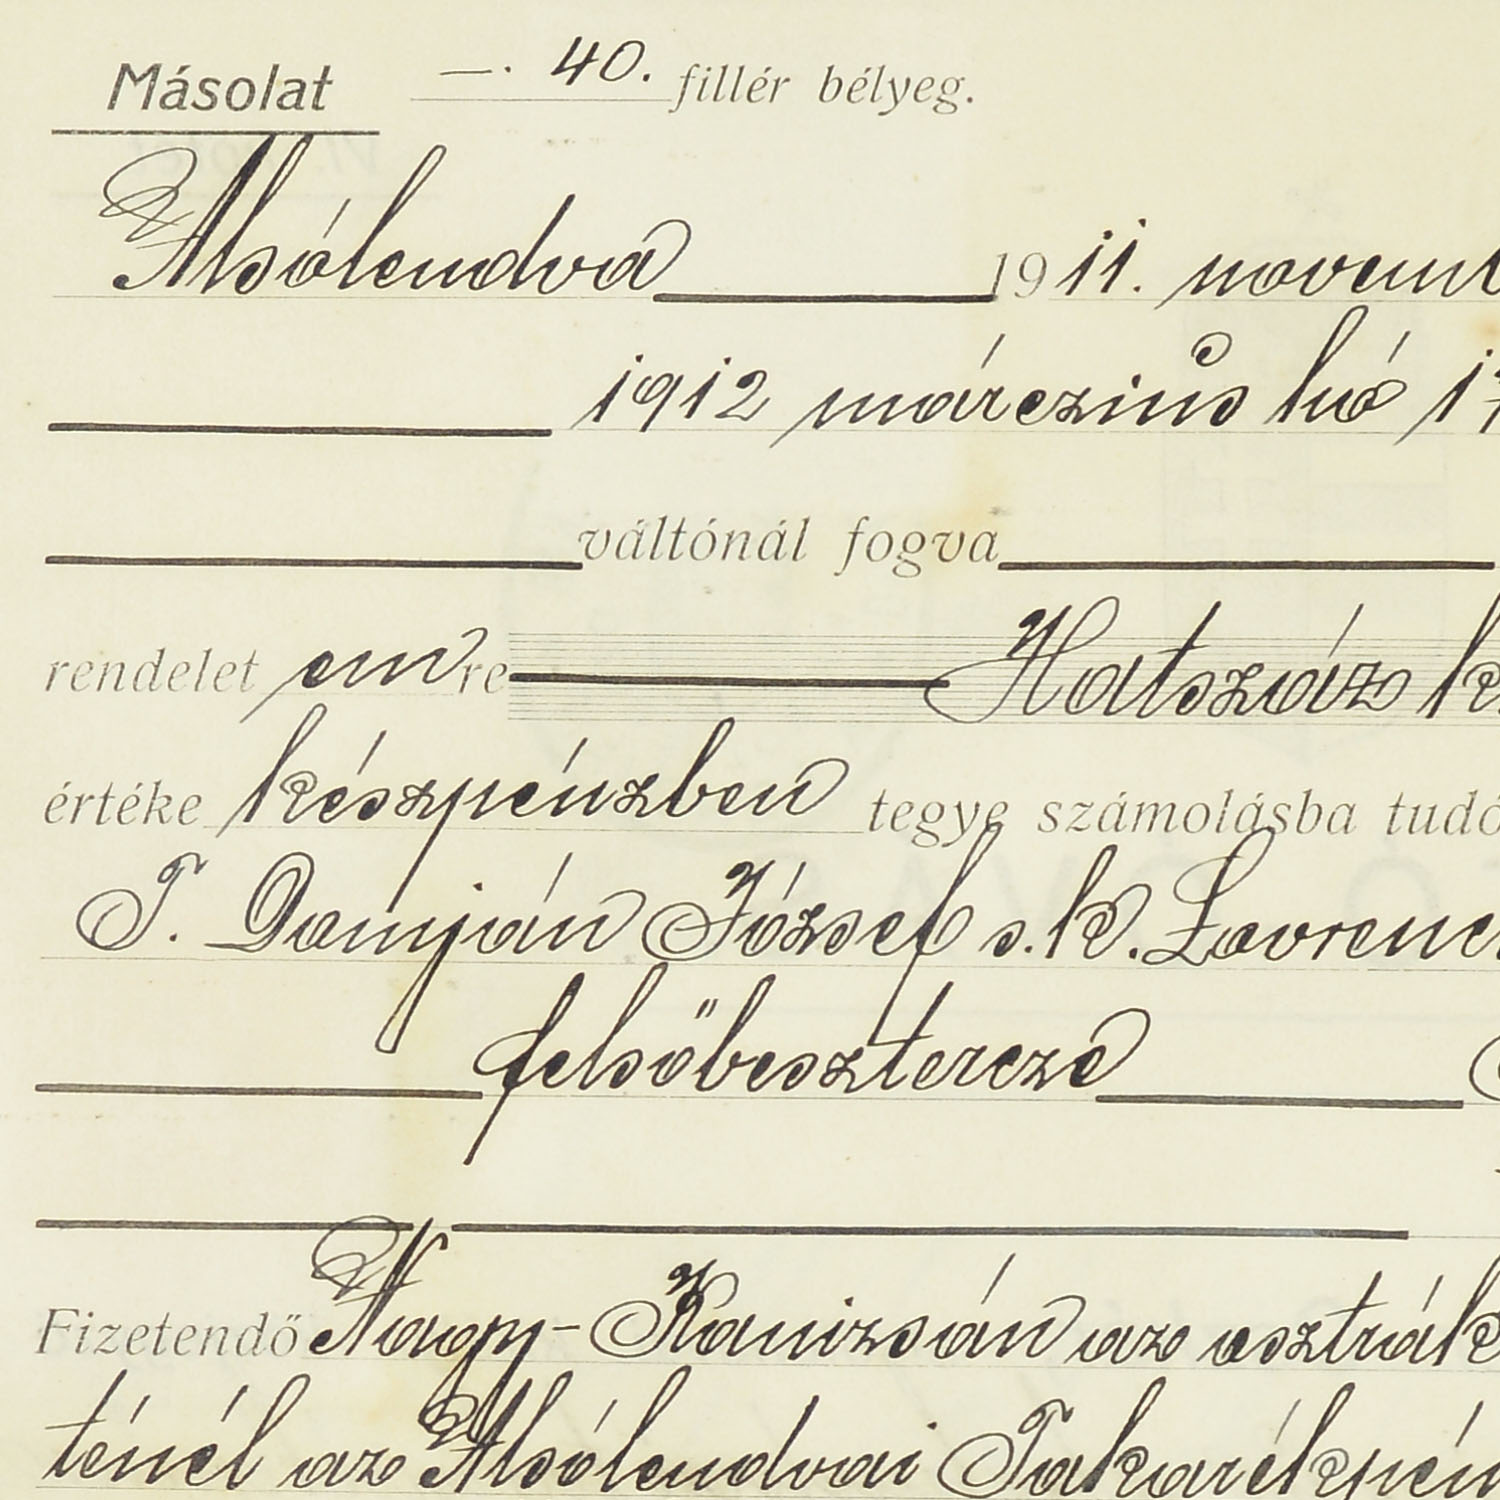 Másolat —. 40. fillér bélyeg.
Alsólendva 1911. novemb
1912 márczius hó 17
váltónál fogva
rendelet emre Hatszáz k
értéke készpénzben tegye számolásba tudó
T. Damján József s.k. Lovrenc
felsőbesztercze
Fizetendő Nagy-Kanizsán az osztrák
ténél az Alsólendvai Takarékpén